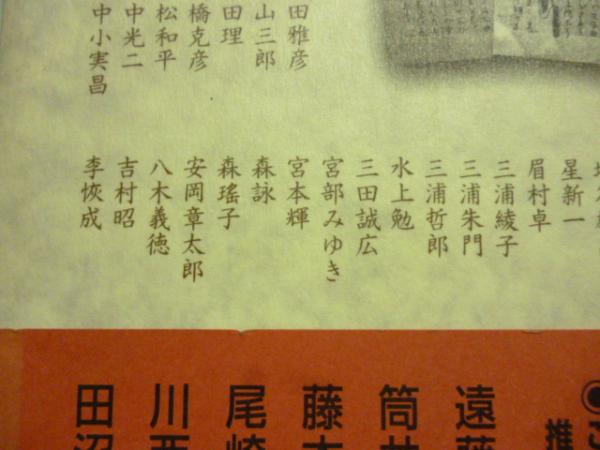 田雅彦
山三郎
田理
橋克彦
松和平
中光二
中小実昌
星新一
眉村卓
三浦綾子
三浦朱門
三浦哲郎
三田誠広
水上勉
宮部みゆき
宮本輝
森詠
森瑤子
安岡章太郎
八木義徳
吉村昭
李恢成
推
遠藤
筒井
藤本
尾崎
川西
田沼